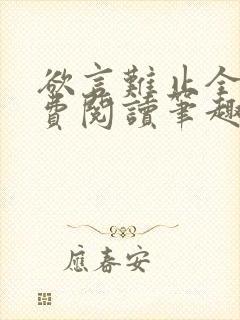 欲言難止全
費閱讀筆趣
應春安